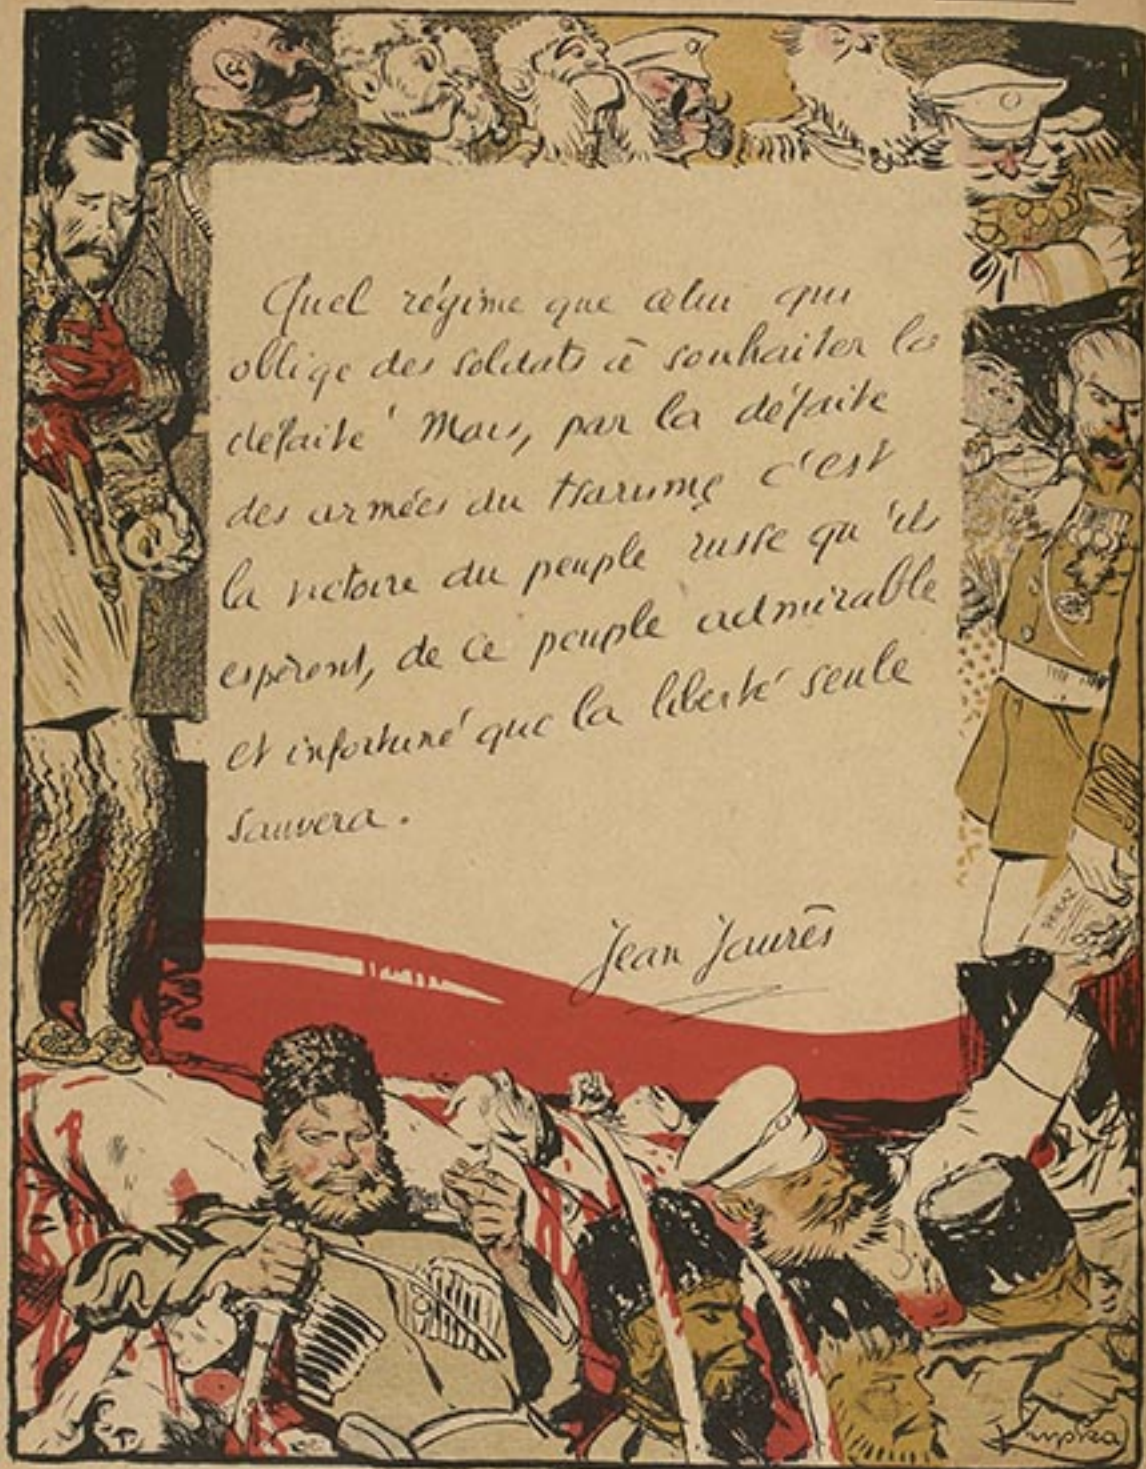 Quel régime que celui qui
oblige des soldats à souhaiter la
défaite! Mais, par la défaite
des armées du tsarisme c'est
la victoire du peuple russe qu'ils
espèrent, de ce peuple admirable
et infortuné que la liberté seule
sauvera.
Jean Jaurès
Kupka